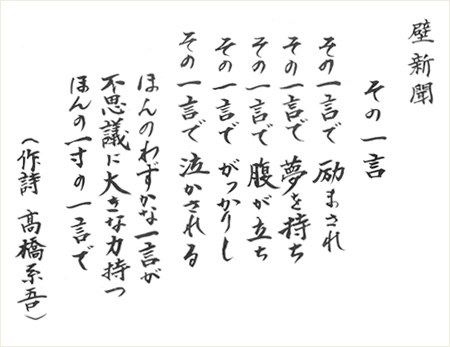 壁新聞
その一言
その一言で 励まされ
その一言で 夢を持ち
その一言で 腹が立ち
その一言で がっかりし
その一言で 泣かされる
ほんのわずかな一言が
不思議に大きな力持つ
ほんの一寸の一言で
（作詩 高橋系吾）